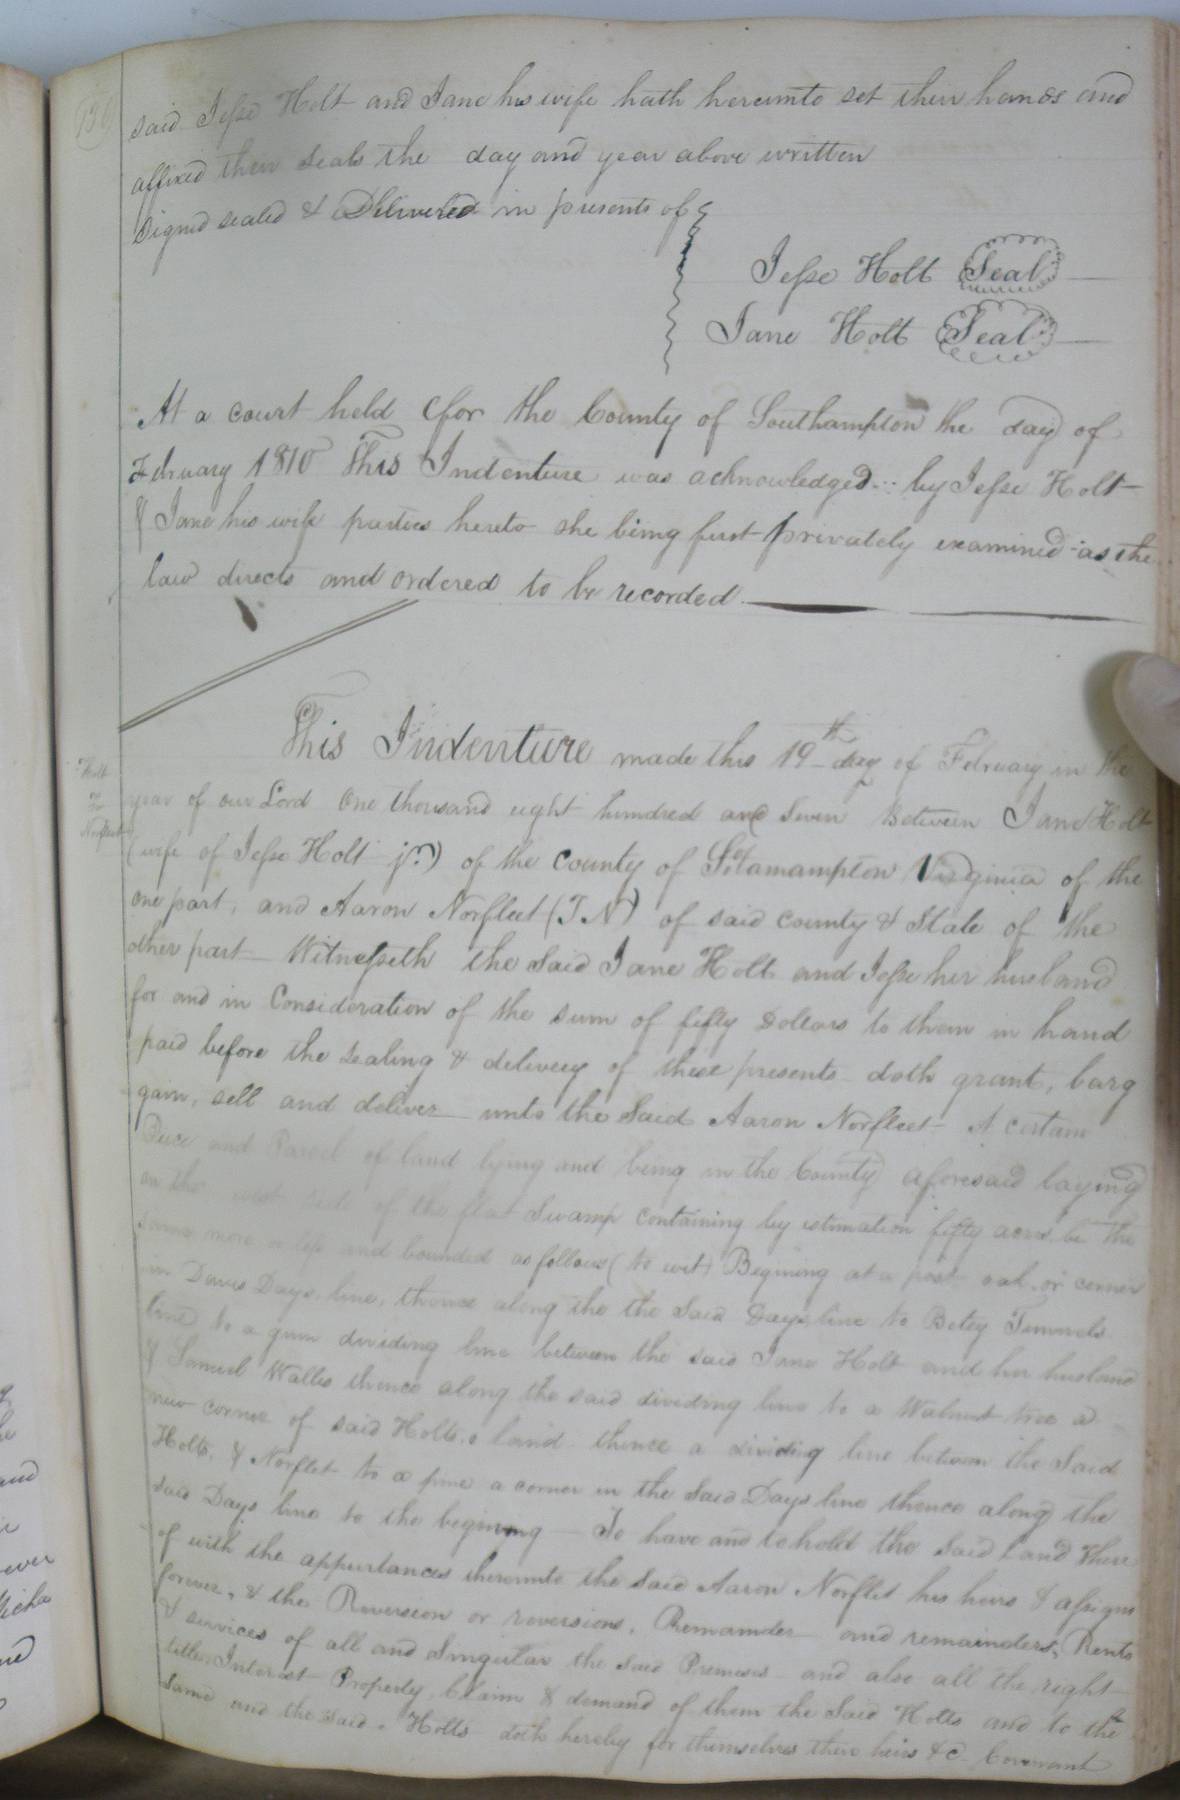 said Jesse Holt and Jane his wife hath hereunto set their hands and
affixed their seals the day and year above written
Signed sealed & Delivered in presents of
Jesse Holt Seal
Jane Holt Seal
At a court held for the County of Southampton the day of
February 1810 This Indenture was acknowledged by Jesse Holt
& Jane his wife parties hereto she being first privately examined as the
law directs and ordered to be recorded
This Indenture made this 19th day of February in the
Holt
to
Norfleet
year of our Lord One thousand eight hundred and Seven Between Jane Holt
(wife of Jesse Holt jr.) of the County of Virginia of the
one part, and Aaron Norfleet (T N) of said County & State of the
other part Witnesseth the Said Jane Holt and Jesse her husband
for and in Consideration of the sum of fifty Dollars to them in hand
paid before the sealing & delivery of these presents doth grant, barg
gain, sell and deliver unto the Said Aaron Norfleet A certain
Piece and Parcel of land lying and being in the County aforesaid laying
on the west side of the flat Swamp containing by estimation fifty acres be the
same more or less and bounded as follows (to wit) Begining at a post oak or corner
in Days line, thence along the the Said Days line to Betsy
line to a gum dividing line between the said Jane Holt and her husband
& Samuel Walles thence along the said dividing line to a Walnut tree a
new corner of said Holts land thence a dividing line between the Said
Holts, & Norflet to a pine a corner in the Said Days line thence along the
said Days line to the begining — To have and to hold the Said Land There
of with the appurtances thereunto the Said Aaron Norflet his heirs & assigns
forever, & the Reversion or reversions, Remainder and remainders, Rents
& services of all and Singular the Said Premises and also all the right
titles Interest Property, Claim & demand of them the Said Holts and to the
Same and the said Holts doth hereby for themselves their heirs &c Covenant